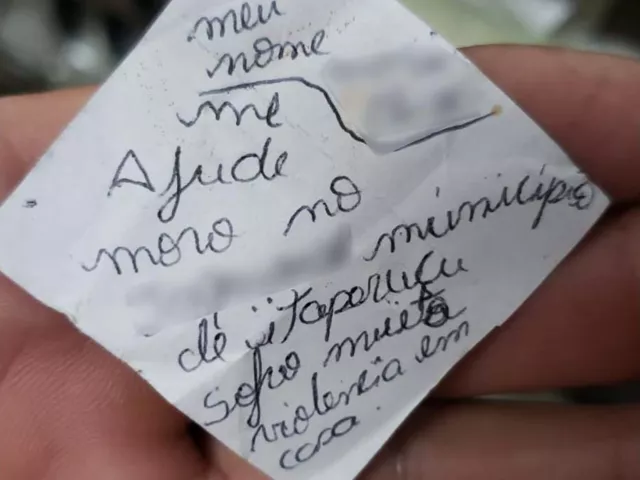 meu
nome
me
Ajude
moro no
município
dé iitaporucu
sofro muita
violencia em
casa.